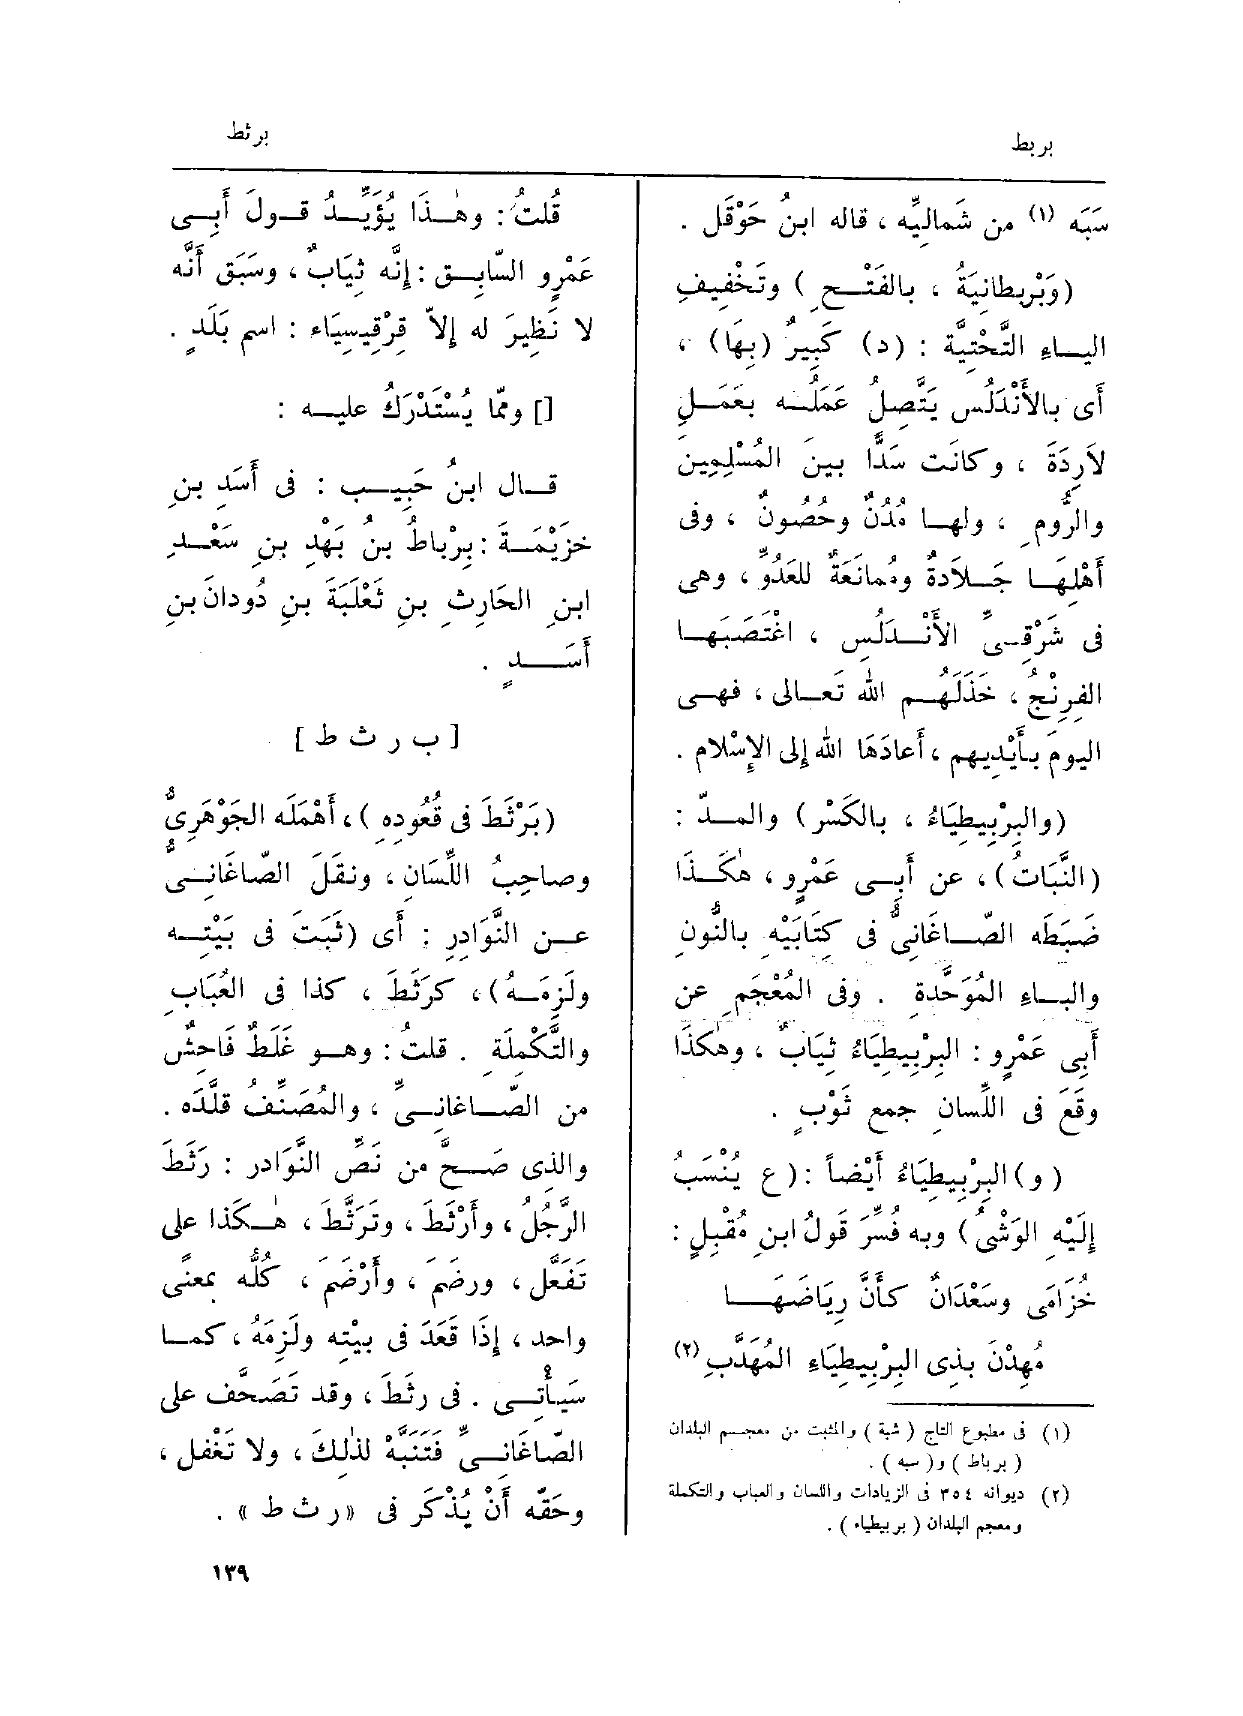 بربط
برثط
سَبَه (١) من شَمالِيِّه ، قاله ابنُ حَوْقَل .
(وَبْرِبطانِيَةُ ، بالفَتْحِ ) وتَخْفِيفِ
الياءِ التَّحْتِيَّة : (د) كَبِيرٌ (بِهَا) ،
أَى بالأَنْدَلُسِ يَتَّصِلُ عَمَلُه بعَمَلِ
لاَرِدَةَ ، وكانَت سَدًّا بينَ المُسْلِمِينَ
والرُّومِ ، ولها مُدُنٌ وحُصُونٌ ، وفى
أَهْلِهَا جَلادَةٌ ومُمانَعَةٌ للعَدُوِّ ، وهى
فى شَرْقِىِّ الأَنْدَلُسِ ، اغْتَصَبَها
الفِرِنْجُ ، خَذَلَهُم اللهُ تَعالى ، فهى
اليومَ بأَيْدِيهِم ، أَعادَهَا اللهُ إلى الإِسْلام .
(والبِرْبِيطِيَاءُ ، بالكَسْرِ) والمدّ :
(النَّبَاتُ) ، عن أَبى عَمْرٍو ، هٰكَذَا
ضَبَطَه الصّاغَانِىُّ فى كِتَابَيْهِ بالنُّونِ
والباءِ المُوَحَّدةِ . وفى المُعْجَمِ عن
أَبِى عَمْرٍو : البِرْبِيطِيَاءُ ثِيَابٌ ، وهٰكَذَا
وقَعَ فى اللِّسانِ جمع ثَوْبٍ .
( و) البِرْبِيطِيَاءُ أَيْضاً : (ع يُنْسَبُ
إِلَيْهِ الوَشْىُ ) وبه فُسِّرَ قَولُ ابنِ مُقْبِلٍ :
خُزَامَى وسَعْدَانٌ كأَنَّ رِيَاضَهَا
مُهِدْنَ بذى البِرْبِيطِيَاءِ المُهَدَّبِ (٢)
(١) فى مطبوع التاج ( شبة ) والمثبت من معجم البلدان
( برباط ) و( سبه ) .
(٢) ديوانه ٣٥٤ فى الزيادات واللسان والعباب والتكملة
ومعجم البلدان ( بربيطياء ) .
قُلتُ : وهٰذَا يُؤَيِّدُ قولَ أَبى
عَمْرٍو السّابِق : إِنَّه ثِيَابٌ ، وسَبَق أَنَّه
لا نَظِيرَ له إِلاّ قِرْقِيسِيَاء : اسم بَلَدٍ .
[] وممّا يُسْتَدْرَكُ عليه :
قال ابنُ حَبِيب : فى أَسَدِ بنِ
خزَيْمَةَ : بِرْباطُ بنُ بَهْدِ بنِ سَعْدِ
ابنِ الحَارِثِ بنِ ثَعْلَبَةَ بنِ دُودانَ بنِ
أَسَدٍ .
[ ب ر ث ط ]
(بَرْثَطَ فى قُعُودِهِ ) ، أَهْمَلَه الجَوْهَرِىُّ
وصاحِبُ اللِّسَانِ ، ونقَلَ الصّاغَانِىُّ
عن النَّوَادِرِ : أَى (ثَبَتَ فى بَيْتِه
ولَزِمَهُ) ، كرَثَطَ ، كذا فى العُبَابِ
والتَّكْمِلَةِ . قلتُ : وهو غَلَطٌ فَاحِشٌ
من الصّاغانىِّ ، والمُصَنِّفُ قلَّدَه .
والذى صَحَّ من نَصِّ النَّوَادر : رَثَطَ
الرَّجُلُ ، وأَرْثَطَ ، وتَرَثَّطَ ، هٰكذا على
تَفَعَّل ، ورضَمَ ، وأَرْضَمَ ، كُلُّه بمعنًى
واحد ، إِذَا قَعَدَ فى بيْتِه ولَزِمَهُ ، كما
سَيأْتى . فى رثَطَ ، وقد تَصَحَّف على
الصّاغانىِّ فَتَنَبَّهْ لذٰلكَ ، ولا تَغْفل ،
وحَقّه أَنْ يُذْكَرَ فى «رث ط» .
١٣٩